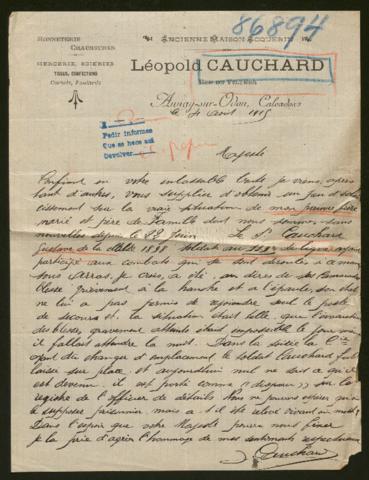 86894
ANCIENNE MAISON ACQUERIN
BONNETERIE
CHAUSSURES
MERCERIE, SOIERIES
TISSUS, CONFECTIONS
Corsets, Foulards
Léopold CAUCHARD
Aunay-sur-Odon, Calvados
le 4 août 1915
Pedir informes
Que se hace aquí
Devolver
Majesté
Confiant en votre inlassable bonté je viens, après
tant d'autres, vous supplier d'obtenir un peu d'éclair
cissement sur la vraie situation de mon pauvre frère
marié et père de famille dont nous sommes sans
nouvelles depuis le 22 Juin. Le St Cauchard
Gustave de la classe 1898 soldat au de ligne ayant
participé aux combats qui se sont déroulés à ce moment
sous Arras, je crois, a été, au dires de ses camarades
blessé grièvement à la hanche et à l'épaule, son état
ne lui a pas permis de rejoindre seul le poste
de secours et la situation était telle que l'évacuation
des blessés gravement atteints étant impossible le jour même
il fallait attendre la nuit. Dans la soirée la Cie
ayant du changer d'emplacement le soldat Cauchard fut
laissé sur place et aujourd'hui nul ne sait ce qu'il
est devenu. il est porté comme "disparu" sur le
registre de l'officier de détails. Nous ne pouvons espérer
le supposer prisonnier mais a-t-il été relevé vivant ou mort?
Dans l'espoir que votre Majesté pourra nous fixer
je la prie d'agréer l'hommage de mes sentiments respectueux
Cauchard